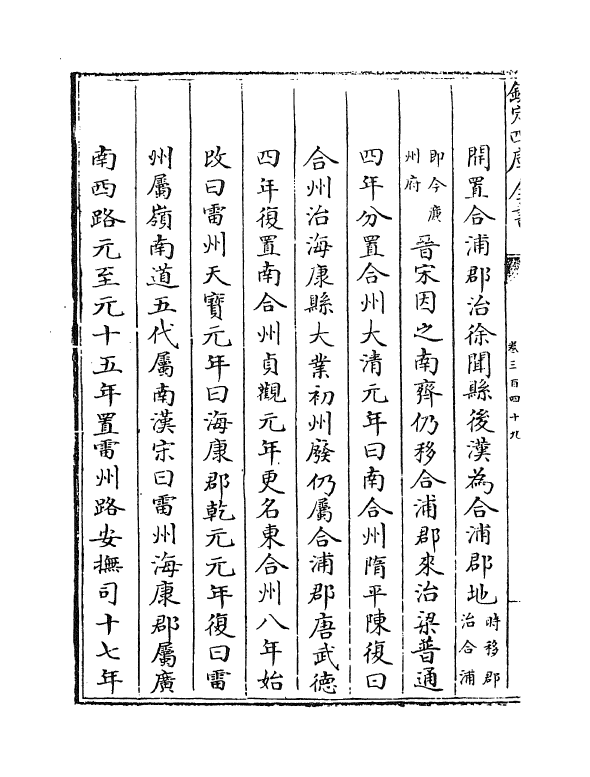 欽定四庫全書
卷三百四十九
開置合浦郡治徐聞縣後漢為合浦郡地時移郡治合浦
即今廉州府晉宋因之南齊仍移合浦郡來治梁普通
四年分置合州大清元年曰南合州隋平陳復曰
合州治海康縣大業初州廢仍屬合浦郡唐武德
四年復置南合州貞觀元年更名東合州八年始
改曰雷州天寶元年曰海康郡乾元元年復曰雷
州屬嶺南道五代屬南漢宋曰雷州海康郡屬廣
南西路元至元十五年置雷州路安撫司十七年